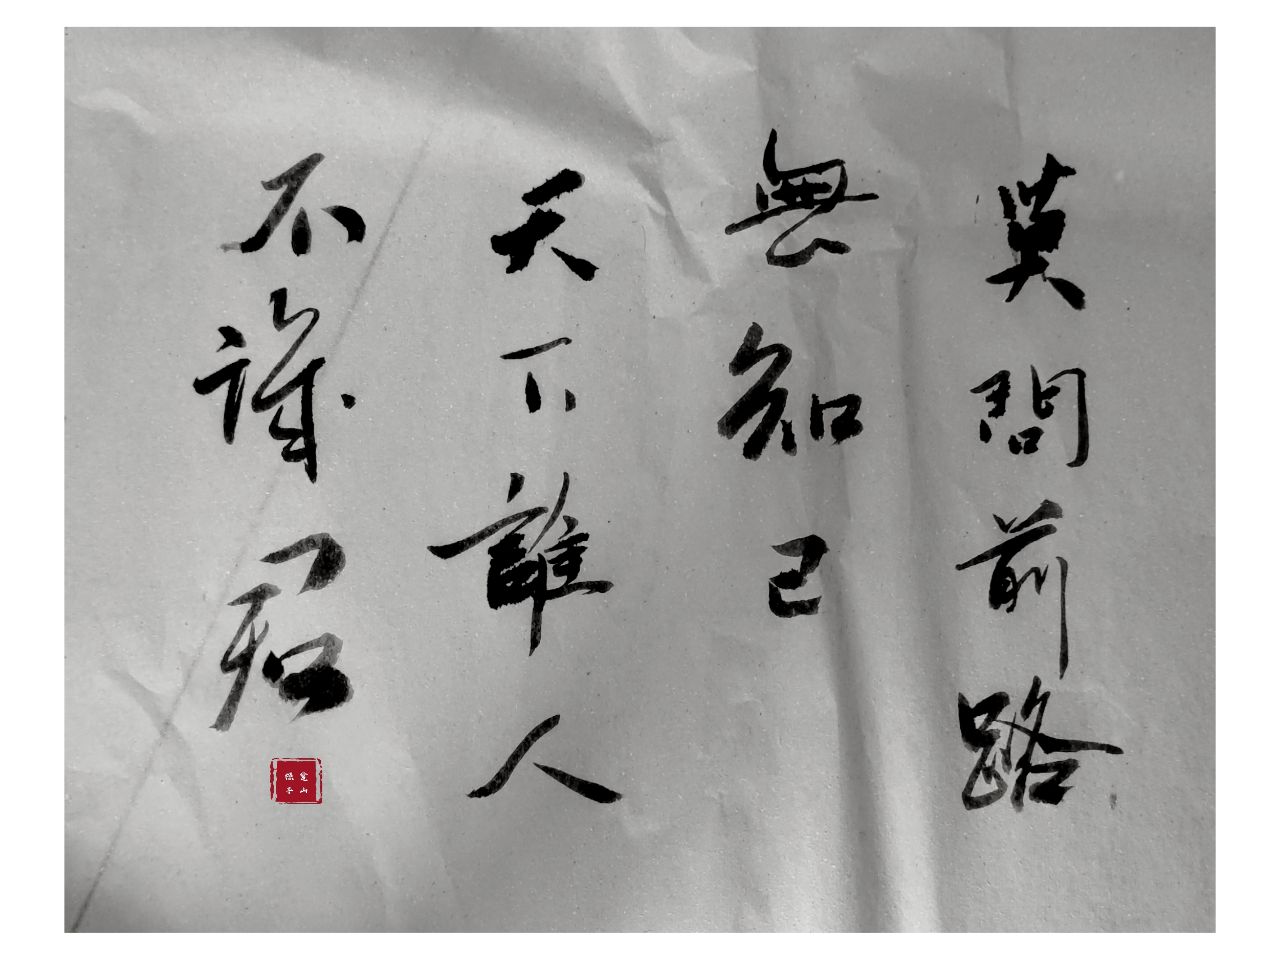 莫問前路
無知己
天下誰人
不識君